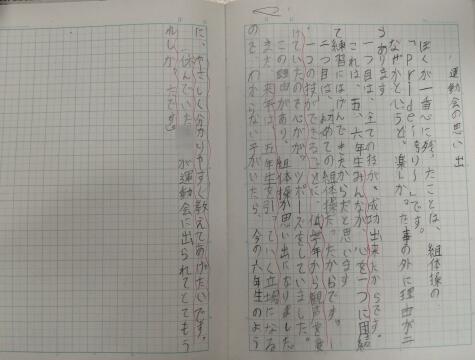 運動会の思い出
ぼくが一番心に残ったことは、組体操の
「Pride〜誇り〜」です。
なぜかというと、楽しかった事の外に理由が二
つあります
一つ目は、全ての技が、成功出来たからです。
これは、五、六年生みんなが、心を一つに団結し
て練習にはげんできたからだと思います
二つ目は、初めての組体操だったからです。
一つの技ができるごとに、低学年から歓声を受
けていたのを心が
この理由があり、組体操が思い出になりました
また、来年は、五年生を引っぱっていく立場になる
ので、わからない子がいたら、今の六年生のよう
に、やさしく分かりやすく教えてあげたいです。
休んでいた
が運動会に出られてとてもう
れしかったです